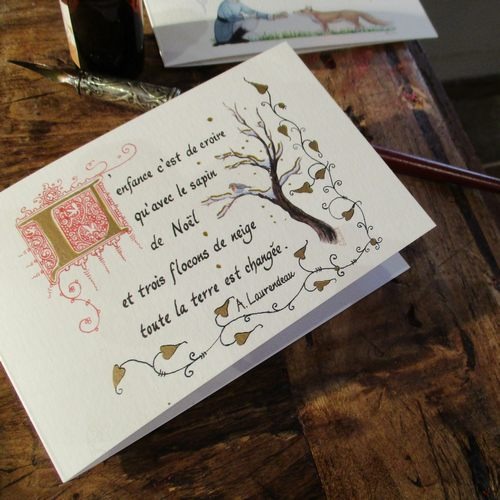 L'enfance c'est de croire
qu'avec le sapin
de Noël
et trois flocons de neige
toute la terre est changée.
A. Laurendeau